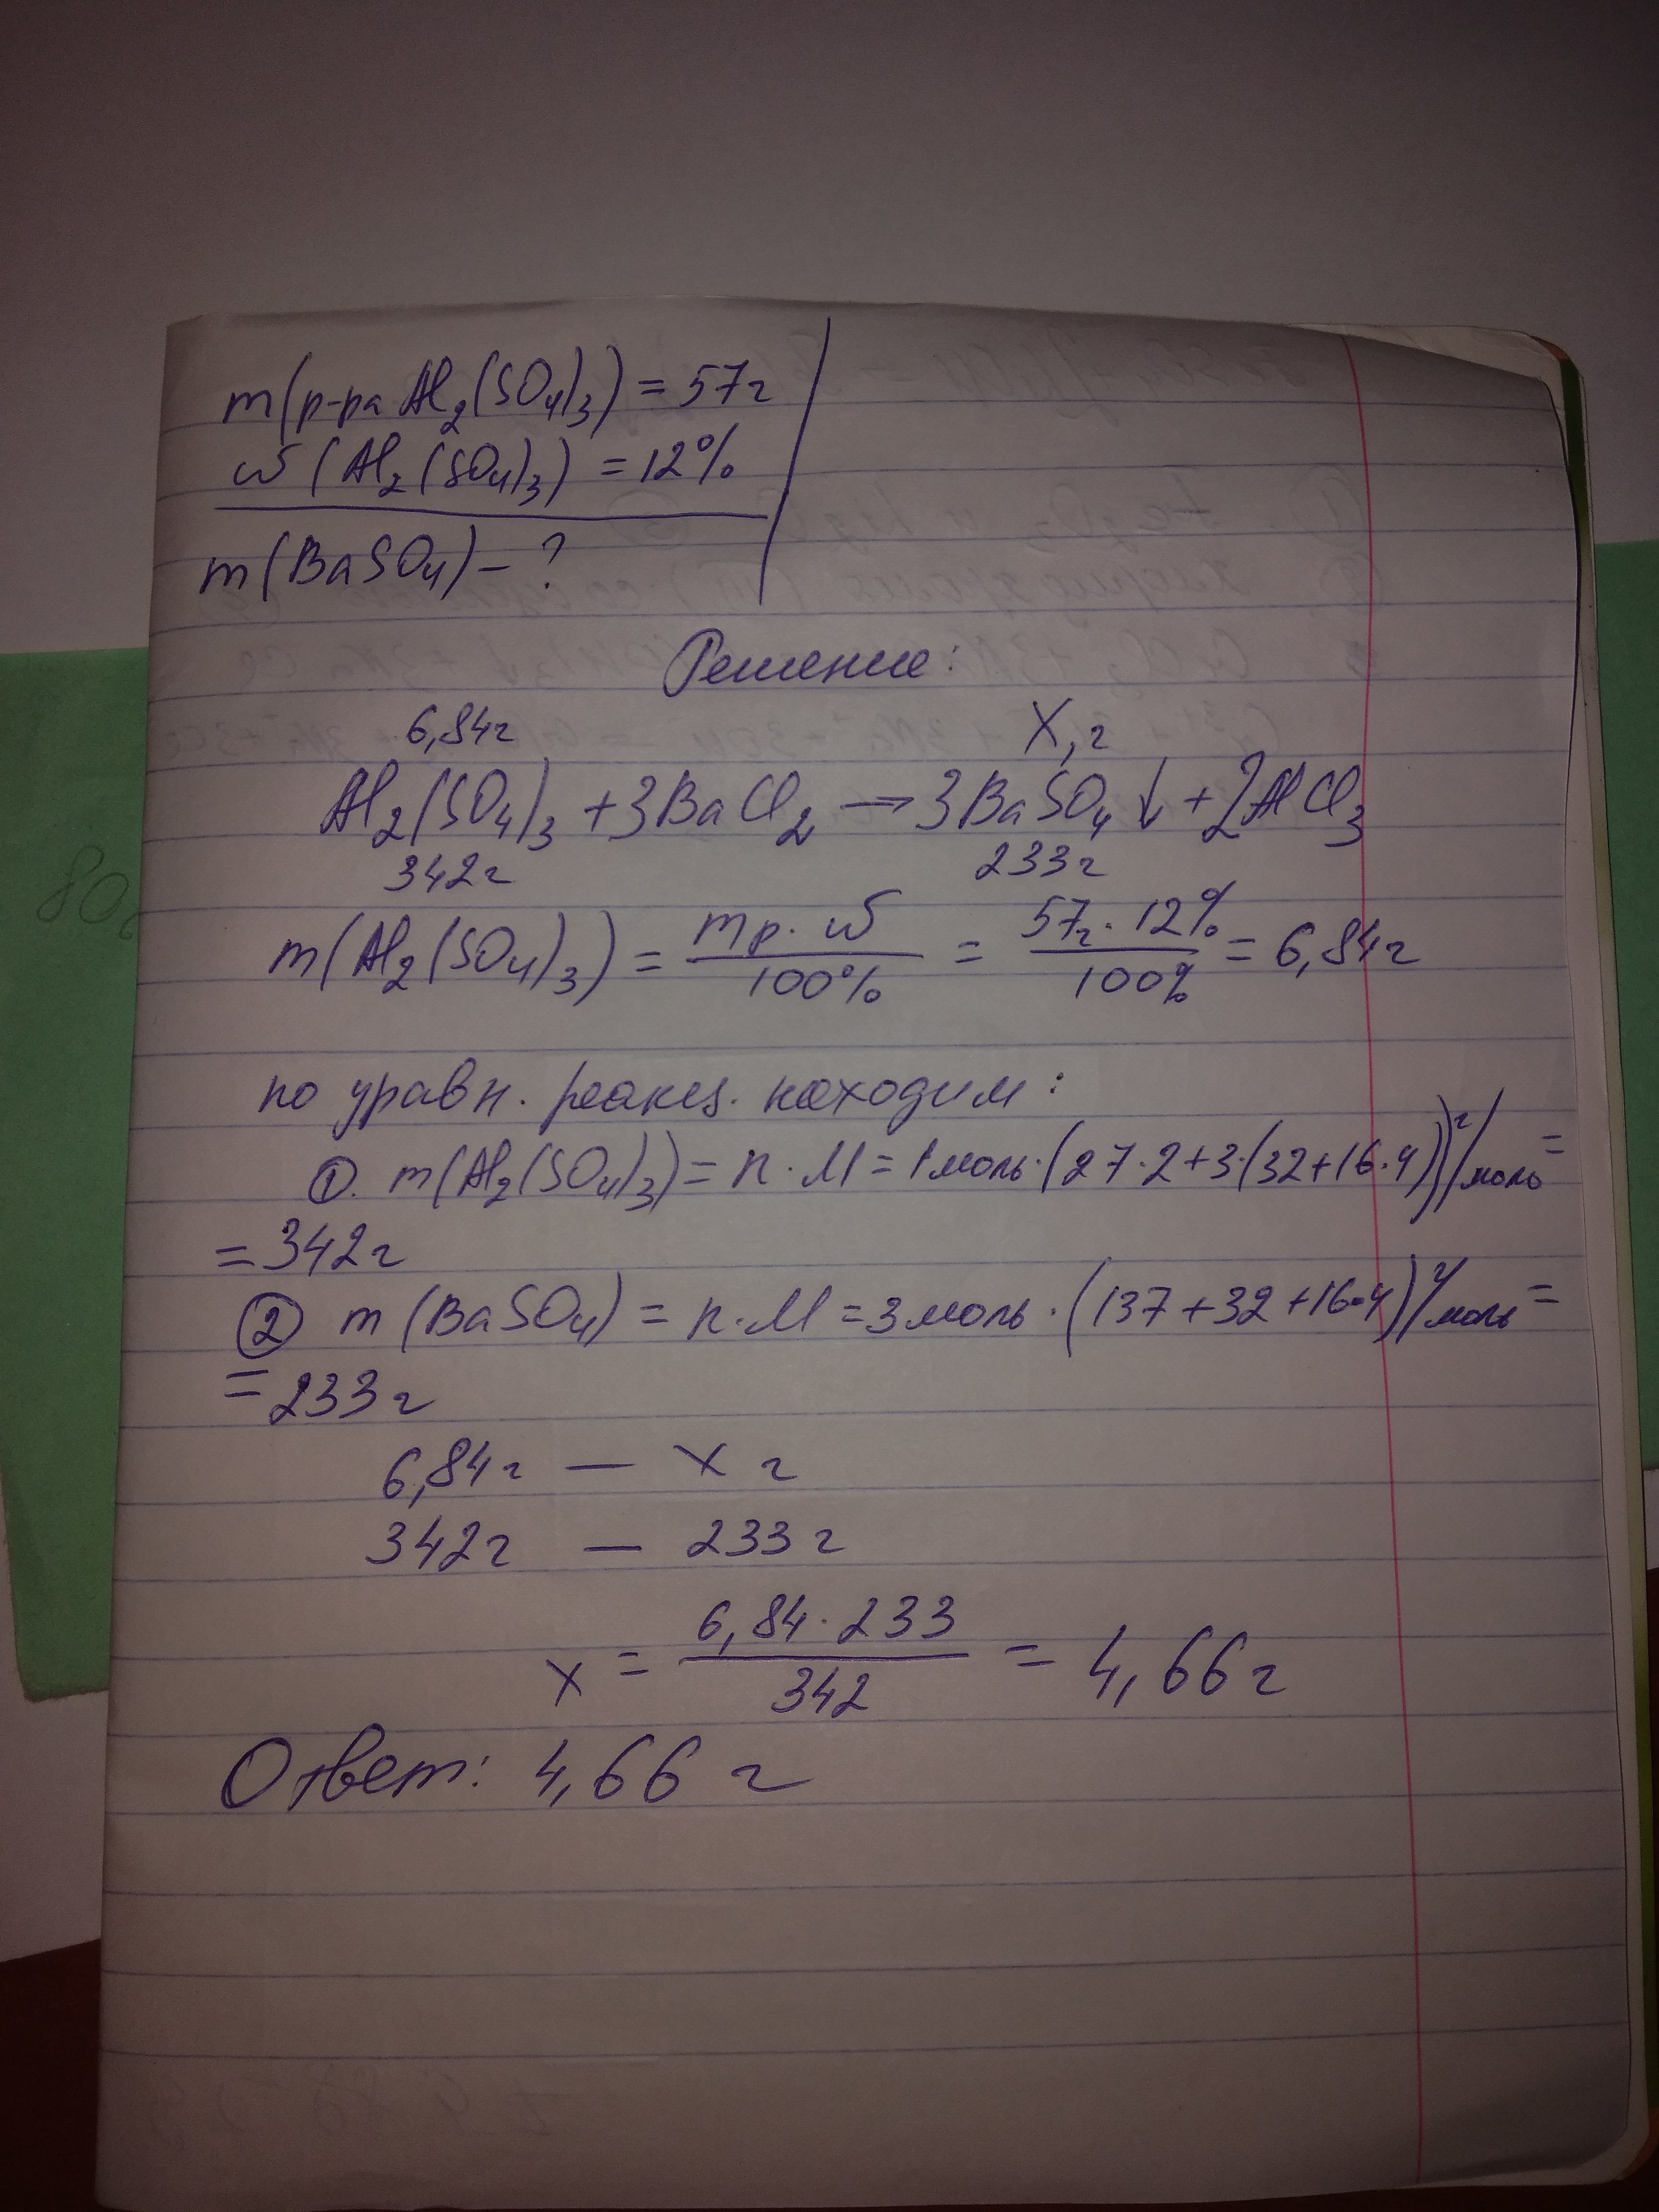 m(р-ра Al₂(SO₄)₃) = 57г
ω (Al₂(SO₄)₃) = 12%
m(BaSO₄) – ?
Решение:
6,84г X, г
Al₂(SO₄)₃ + 3BaCl₂ → 3BaSO₄↓ + 2AlCl₃
342г 233г
m(Al₂(SO₄)₃) = mр. ω / 100% = 57г · 12% / 100% = 6,84г
80г
по уравн. реакц. находим:
①. m(Al₂(SO₄)₃) = n · M = 1моль · (27·2+3·(32+16·4)) г/моль =
= 342г
② m (BaSO₄) = n · M = 3моль · (137+32+16·4) г/моль =
= 233г
6,84г — x г
342г — 233г
x = 6,84 · 233 / 342 = 4,66г
Ответ: 4,66 г